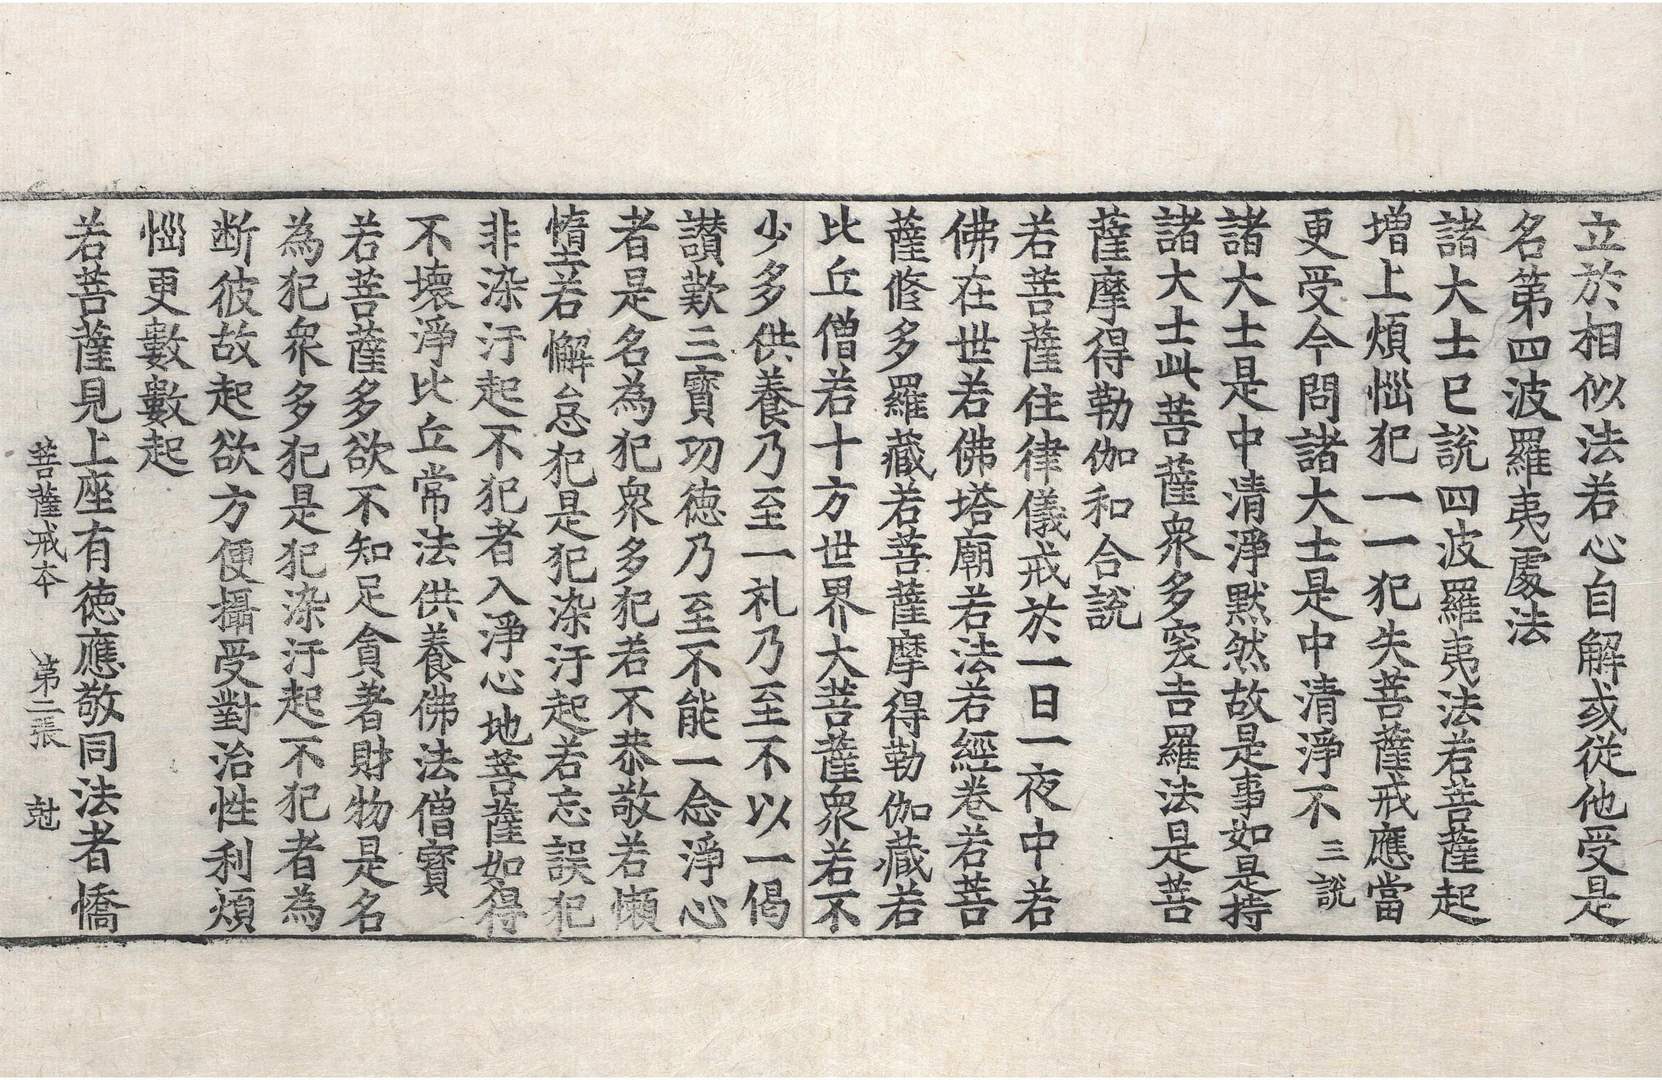 立於相似法若心自解或從他受是
名第四波羅夷處法
諸大士已說四波羅夷法若菩薩起
增上煩惱犯一一犯失菩薩戒應當
更受今問諸大士是中清淨不三說
諸大士是中清淨默然故是事如是持
諸大士此菩薩衆多突吉羅法是菩
薩摩得勒伽和合說
若菩薩住律儀戒於一日一夜中若
佛在世若佛塔廟若法若經卷若菩
薩修多羅藏若菩薩摩得勒伽藏若
比丘僧若十方世界大菩薩衆若不
少多供養乃至一礼乃至不以一偈
讃歎三寶功德乃至不能一念淨心
者是名為犯衆多犯若不恭敬若懶
墮若懈怠犯是犯染汙起若忘誤犯
非染汙起不犯者入淨心地菩薩如得
不壞淨比丘常法供養佛法僧寶
若菩薩多欲不知足貪著財物是名
為犯衆多犯是犯染汙起不犯者為
断彼故起欲方便攝受對治性利煩
惱更數數起
若菩薩見上座有德應敬同法者憍
菩薩戒本 第二張 尅